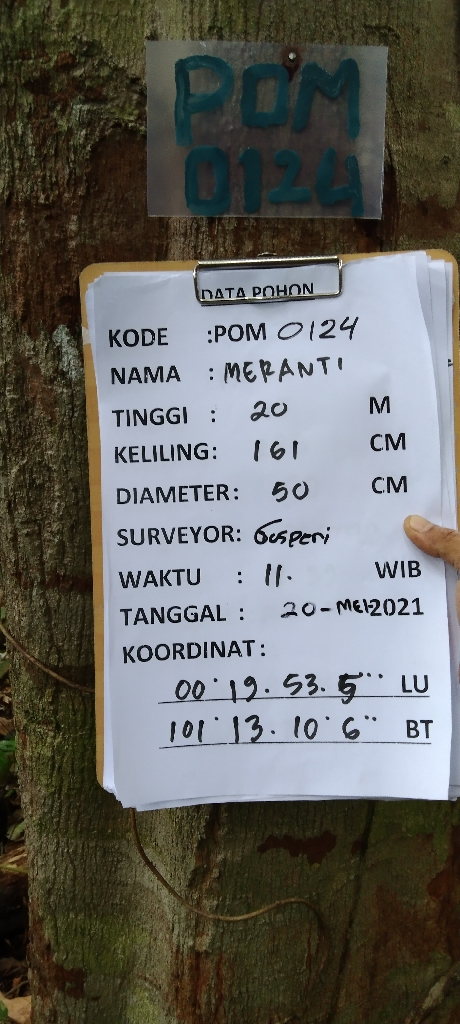 POM
0124
DATA POHON
KODE :POM 0124
NAMA : MERANTI
TINGGI : 20 M
KELILING: 161 CM
DIAMETER: 50 CM
SURVEYOR: Gusperi
WAKTU : 11. WIB
TANGGAL : 20-MEI-2021
KOORDINAT:
00° 19. 53. 5" LU
101° 13. 10° 6" BT